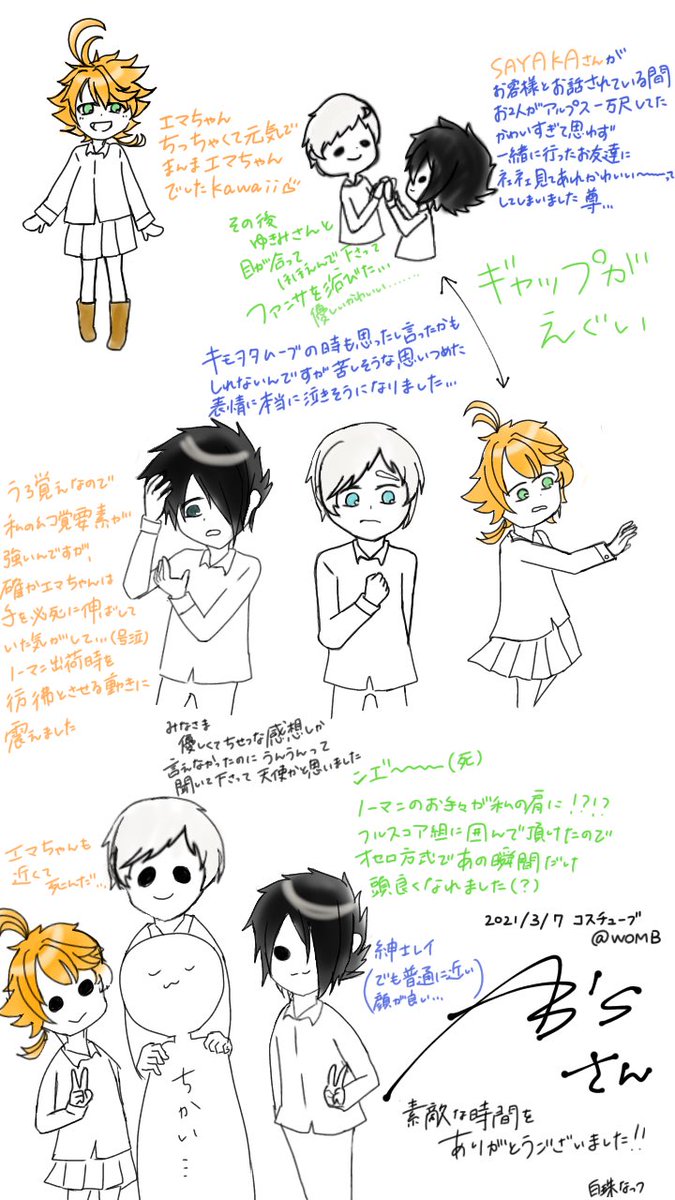 エマちゃん
ちっちゃくて元気で
まんまエマちゃん
でしたkawaii
SAYAKAさんが
お客様とお話されている間
お2人がアルプス一万尺してた
かわいすぎて思わず
一緒に行ったお友達に
ネェネェ見てあれかわいい〜〜〜って
してしまいました 尊...
その後
ゆきみさんと
目が合って
ほほえんで下さって
ファンサを浴びた...
優しいかわいい.......
ギャップが
えぐい
キモヲタムーブの時も思ったし言ったかも
しれないんですが苦しそうな思いつめた
表情に本当に泣きそうになりました...
うろ覚えなので
私の幻覚要素が
強いんですが、
確かエマちゃんは
手を必死に伸ばして
いた気がして...(号泣)
ノーマン出荷時を
彷彿とさせる動きに
震えました
みなさま
優しくてちせつな感想しか
言えなかったのにうんうんって
聞いて下さって 天使かと思いました
エマちゃんも
近くて
死んだ...
ンエ〜〜〜(死)
ノーマンのお手々が私の肩に!?!?
フルスコア組に囲んで頂けたので
オセロ方式であの瞬間だけ
頭良くなれました(?)
紳士レイ
(でも普通に近い
顔が良い...)
ちかい...
2021/3/7 コスチューブ
@WOMB
さん
素敵な時間を
ありがとうございました!!